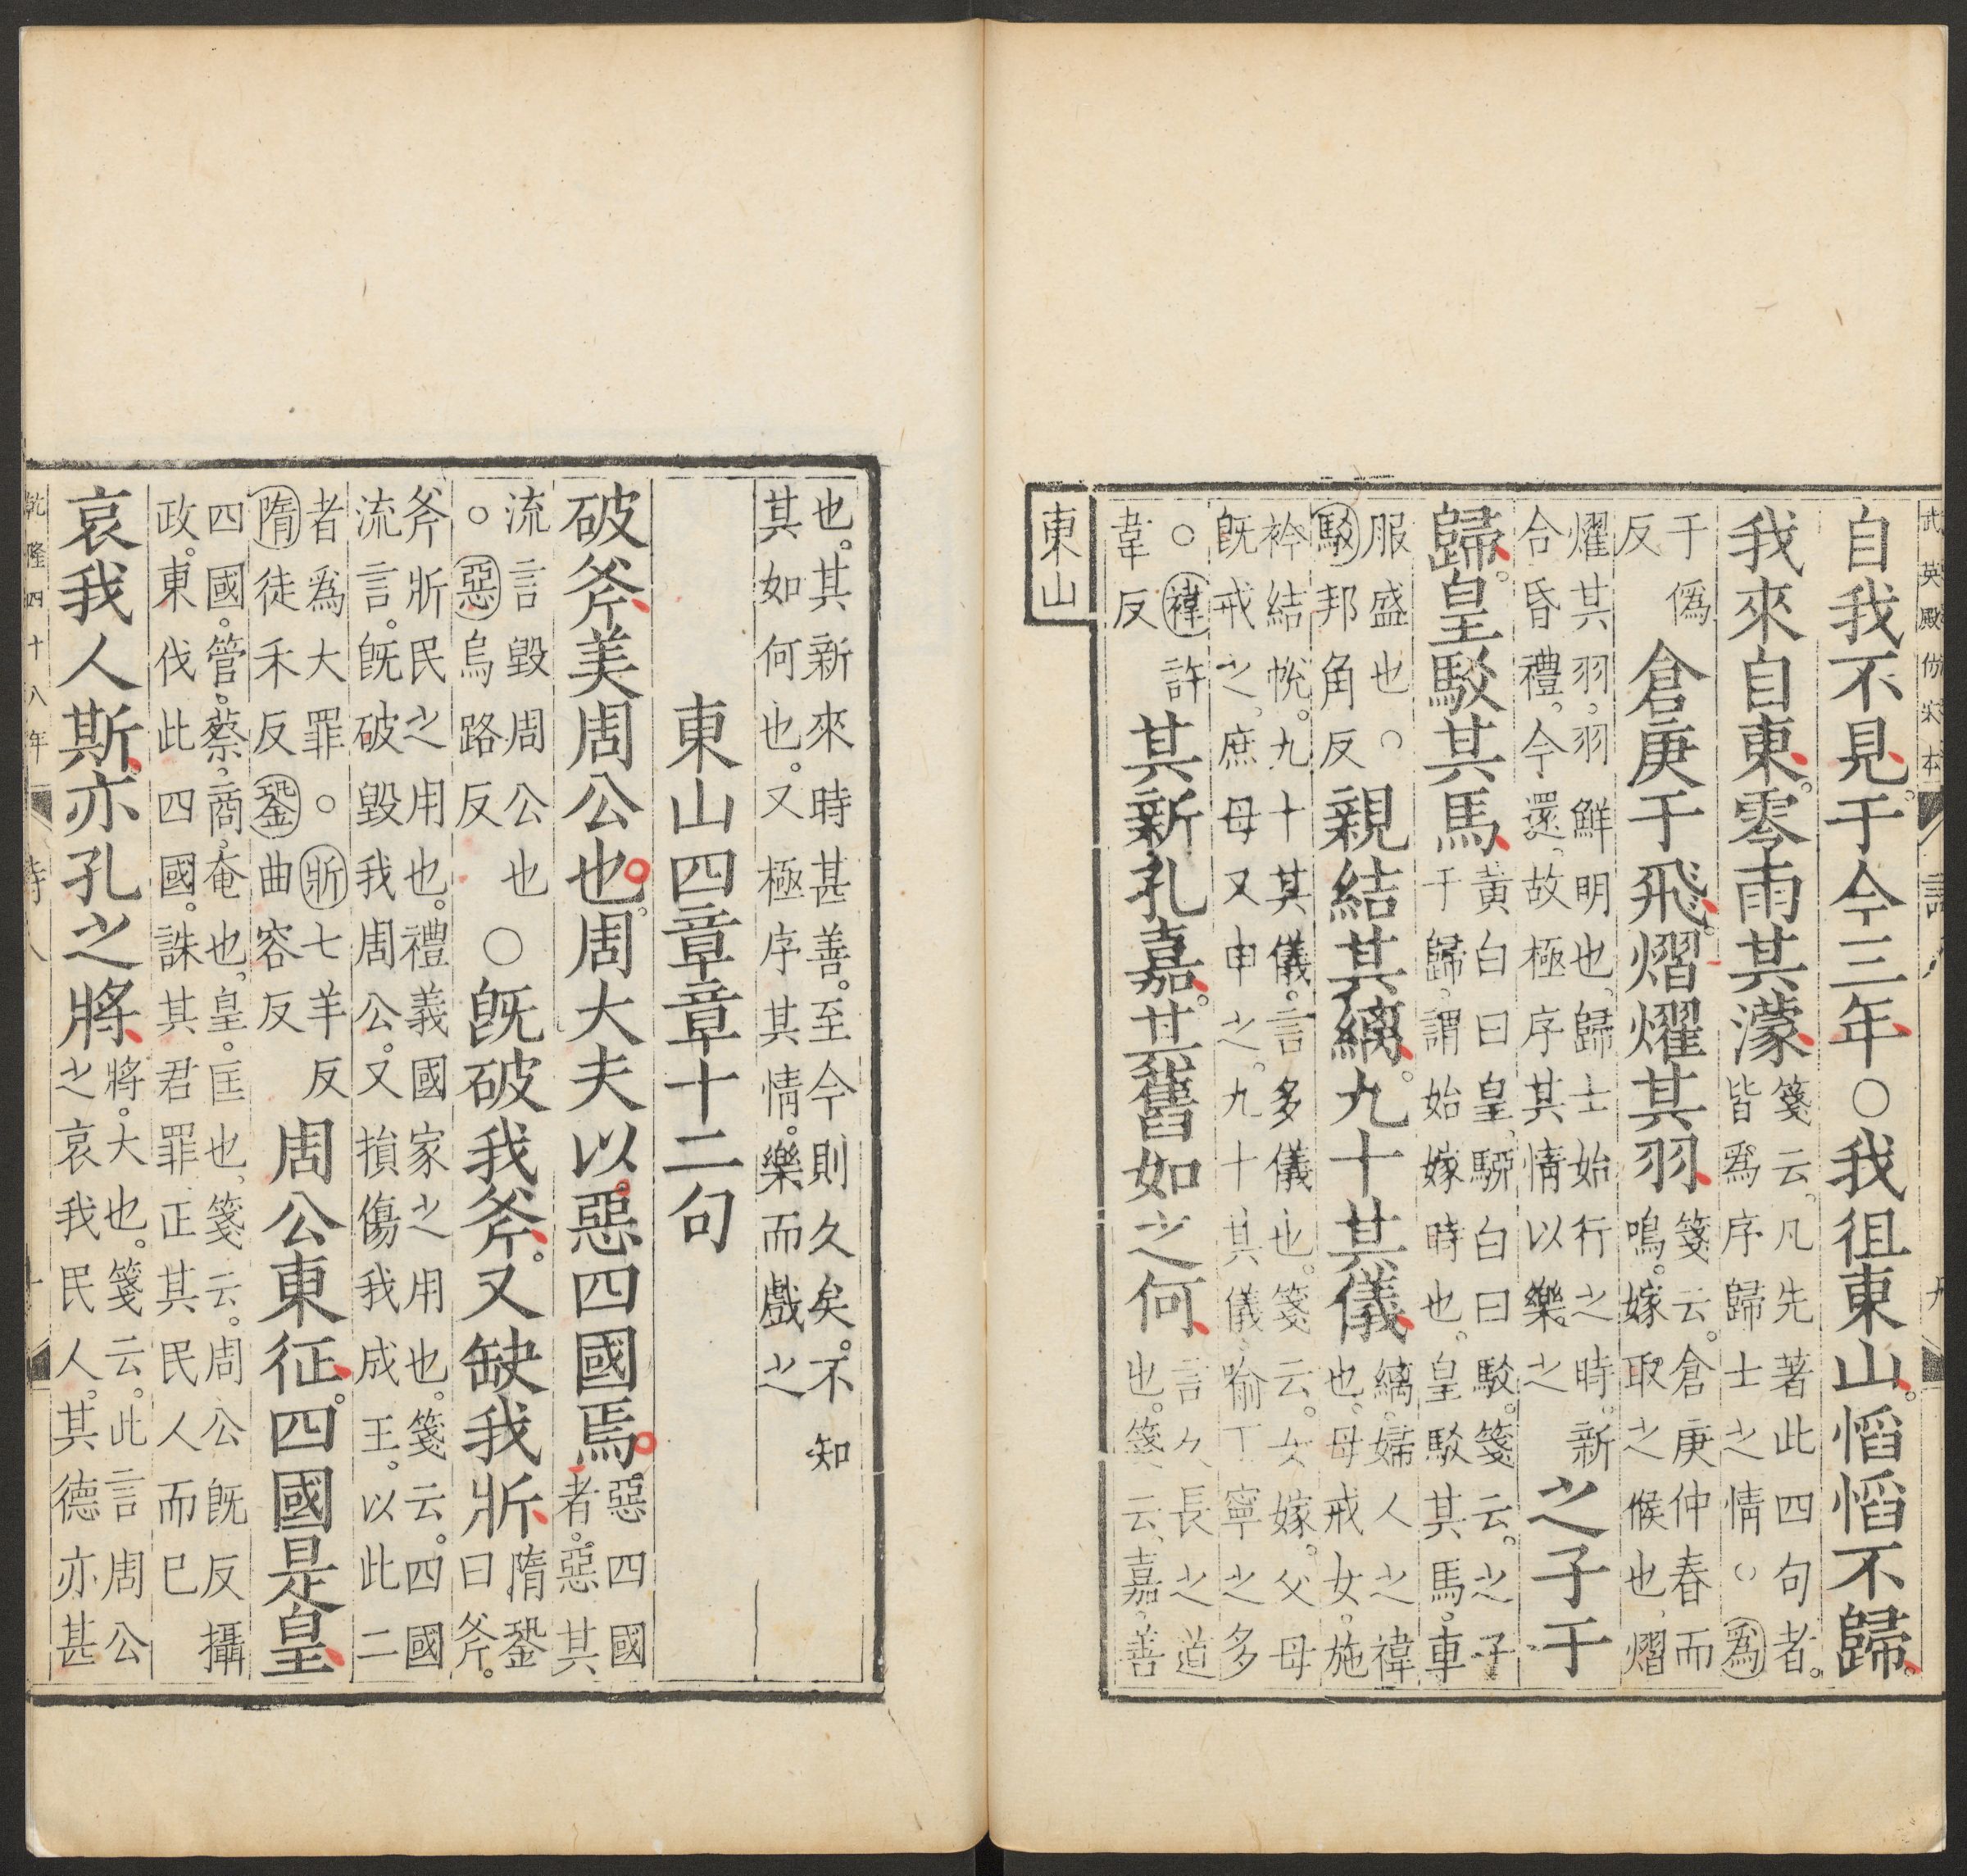 武英殿仿宋本
詩
自我不見。于今三年○我徂東山。慆慆不歸。
我來自東。零雨其濛
箋云、凡先著此四句者。
皆爲序歸士之情○爲
于僞
反
倉庚于飛。熠燿其羽
箋云。倉庚仲春而
鳴。嫁取之候也、熠
燿其羽。羽鮮明也、歸士始行之時。新
合昏禮。今還、故極序其情以樂之
之子于
歸。皇駁其馬
黃白曰皇、騢白曰駁。箋云。之子
于歸。謂始嫁時也。皇駁其馬。車
服盛也。○
駁邦角反
親結其縭。九十其儀
縭。婦人之褘
也、母戒女。施
衿結帨。九十其儀。言多儀也。箋云。女嫁。父母
旣戒之、庶母又申之。九十其儀、喻丁寧之多
○褘許
韋反
其新孔嘉。其舊如之何
言久長之道
也。箋云、嘉、善
東山
也。其新來時甚善。至今則久矣。不知
其如何也。又極序其情。樂而戲之
東山四章章十二句
破斧美周公也。周大夫以惡四國焉。
惡四國
者。惡其
流言毀周公也
○惡烏路反
○旣破我斧。又缺我斨
隋銎
曰斧。
斧斨民之用也。禮義國家之用也。箋云。四國
流言。旣破毀我周公。又損傷我成王。以此二
者爲大罪○斨七羊反
隋徒禾反銎曲容反
周公東征。四國是皇
四國。管。蔡、商、奄也、皇。匡也、箋云。周公旣反攝
政。東伐此四國。誅其君罪正其民人而已
哀我人斯亦孔之將
將。大也。箋云。此言周公
之哀我民人。其德亦甚
乾隆四十八年